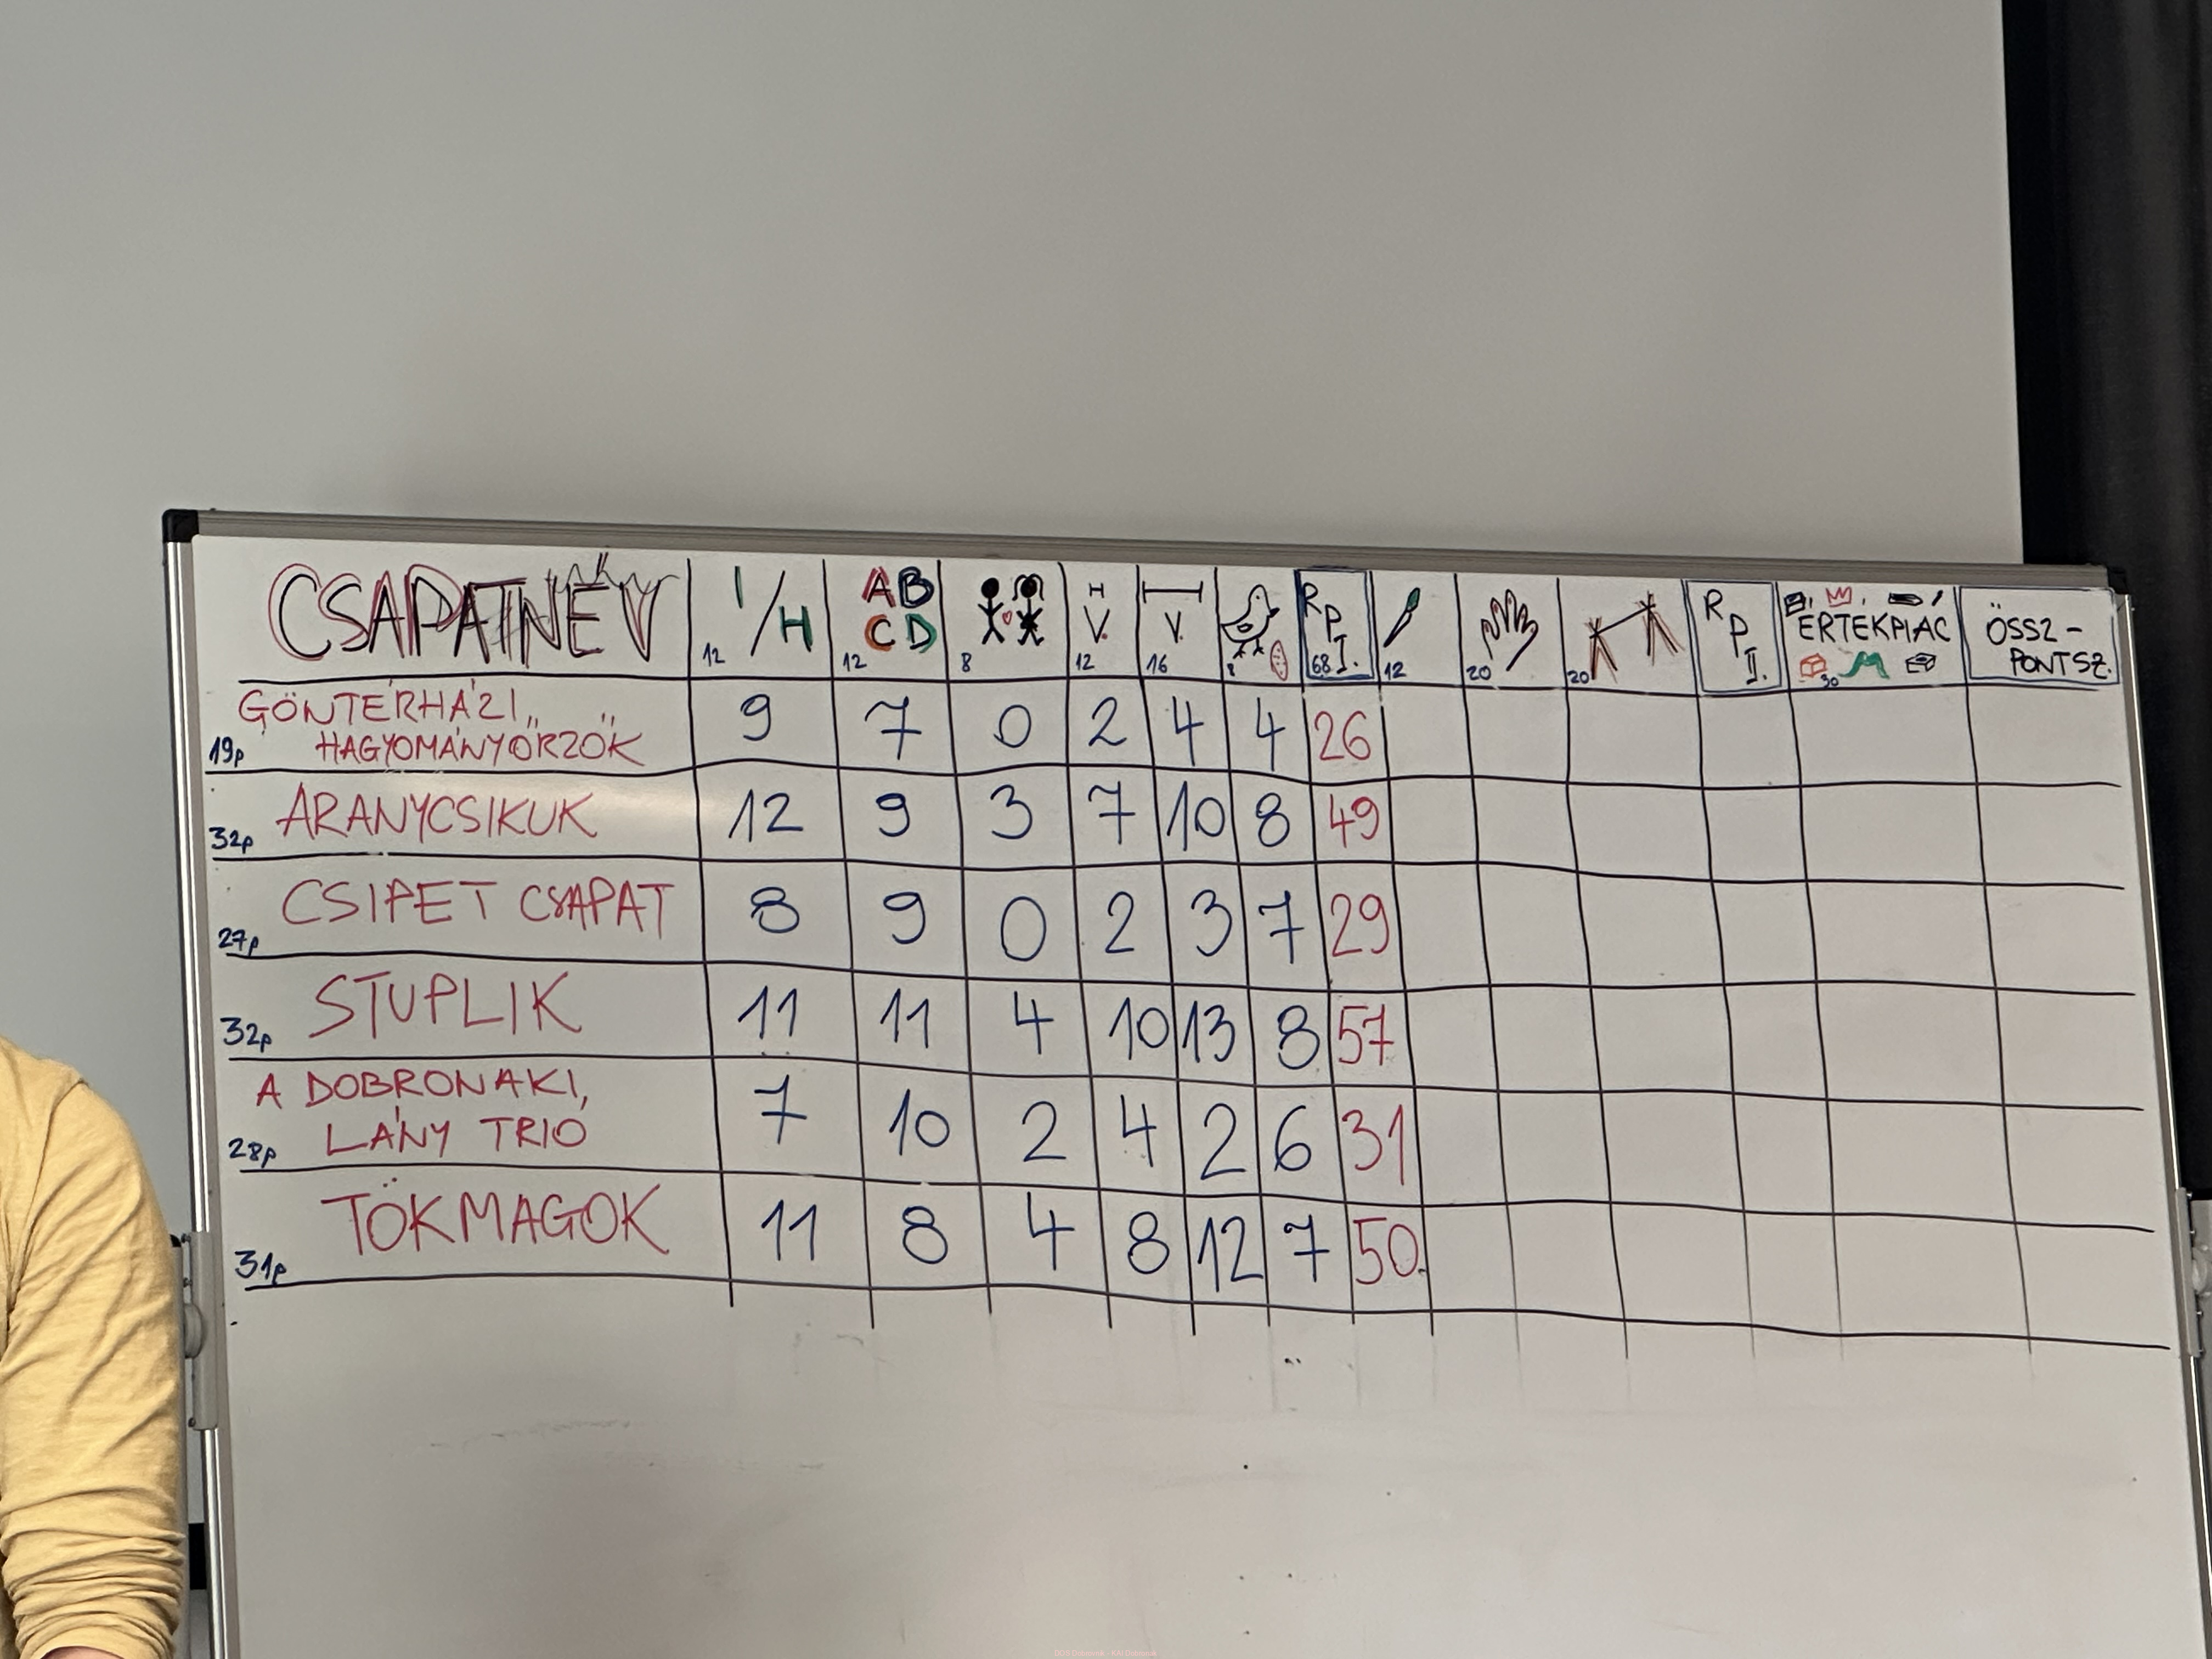 CSAPATNÉV 12 I/H 12 AB 8 H 12 V. 16 V. 8 R P I. 68 12 20 20 R P II. ÉRTÉKPIAC 30 ÖSSZ-
CD PONTSZ.
GÖNTÉRHÁZI
19p HAGYOMÁNYŐRZŐK 9 7 0 2 4 4 26
32p ARANYCSIKUK 12 9 3 7 10 8 49
27p CSIPET CSAPAT 8 9 0 2 3 7 29
32p STUPLIK 11 11 4 10 13 8 57
A DOBRONAKI,
28p LÁNY TRIÓ 7 10 2 4 2 6 31
31p TÖKMAGOK 11 8 4 8 12 7 50